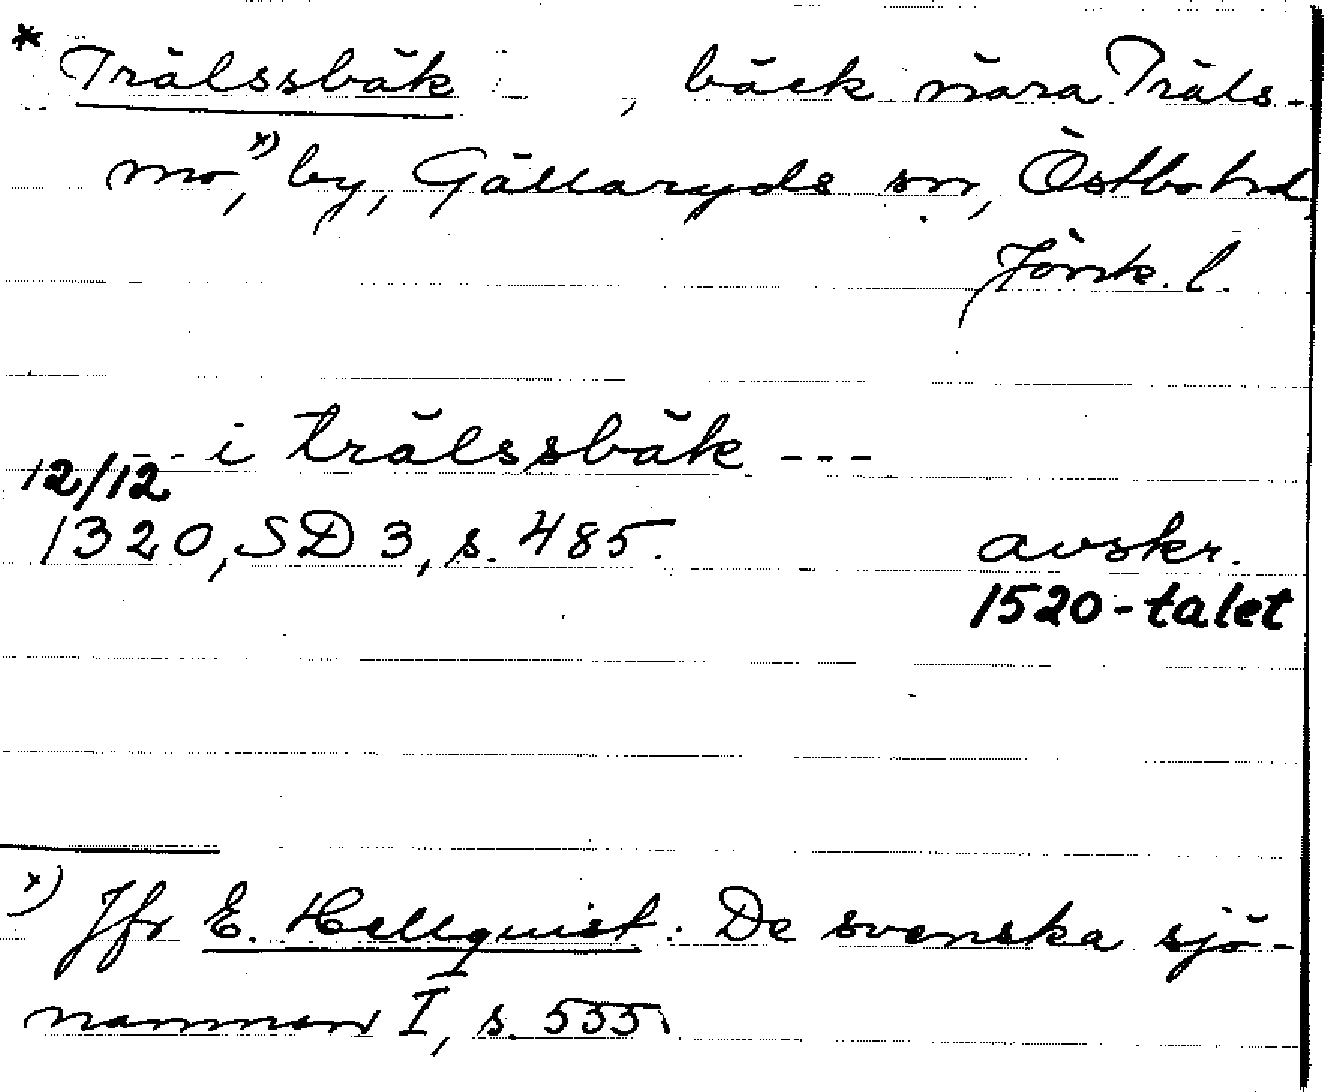 * Trälssbäk , bäck nära Träls-
mo,ˣ⁾ by, Gällaryds sn, Östbo hd,
Jönk. l.
- - i trälssbäk ---
12/12
1320, SD 3, s. 485. avskr.
1520-talet
ˣ⁾ Jfr E. Hellquist: De svenska sjö-
namnen I, s. 555.